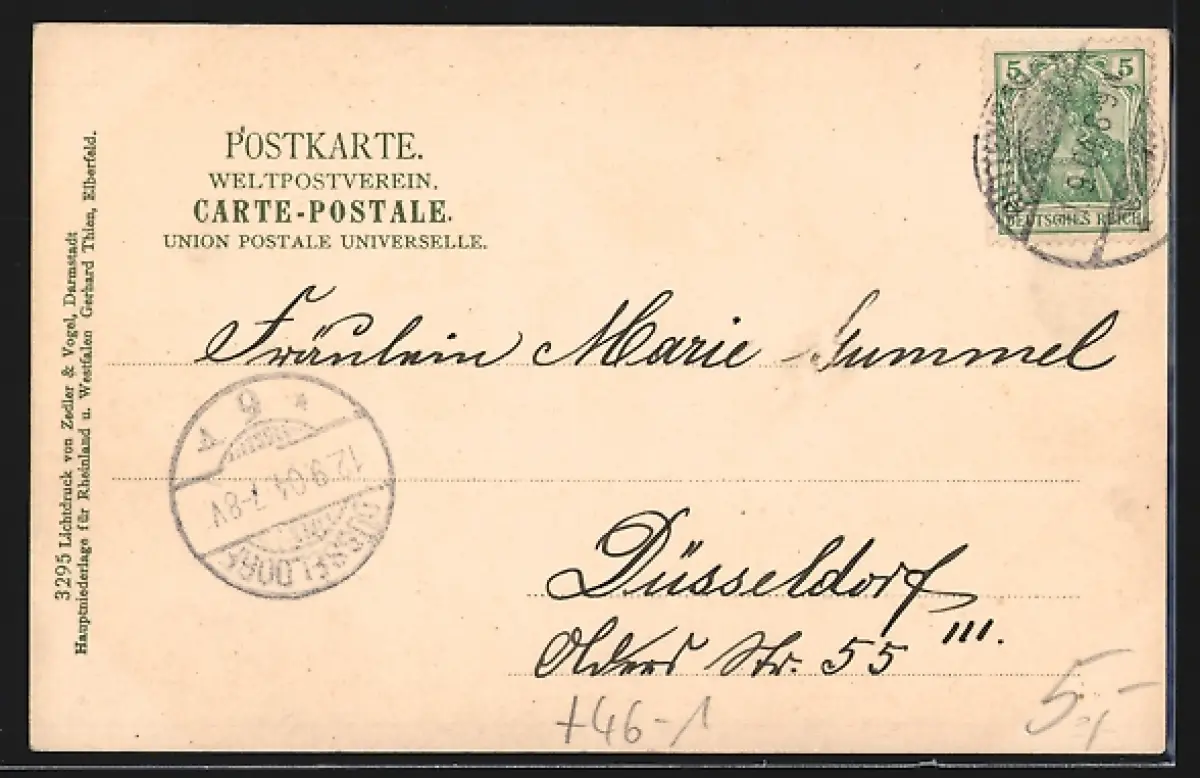 POSTKARTE.
WELTPOSTVEREIN.
CARTE-POSTALE.
UNION POSTALE UNIVERSELLE.
5 5
DEUTSCHES REICH
Fräulein Marie Gummel
Düsseldorf
Str. 55 III.
DÜSSELDORF
12.9.04.7-8V
3295 Lichtdruck von Zedler & Vogel, Darmstadt
Hauptniederlage für Rheinland u. Westfalen Gerhard Thien, Elberfeld.
+46-1
5,-